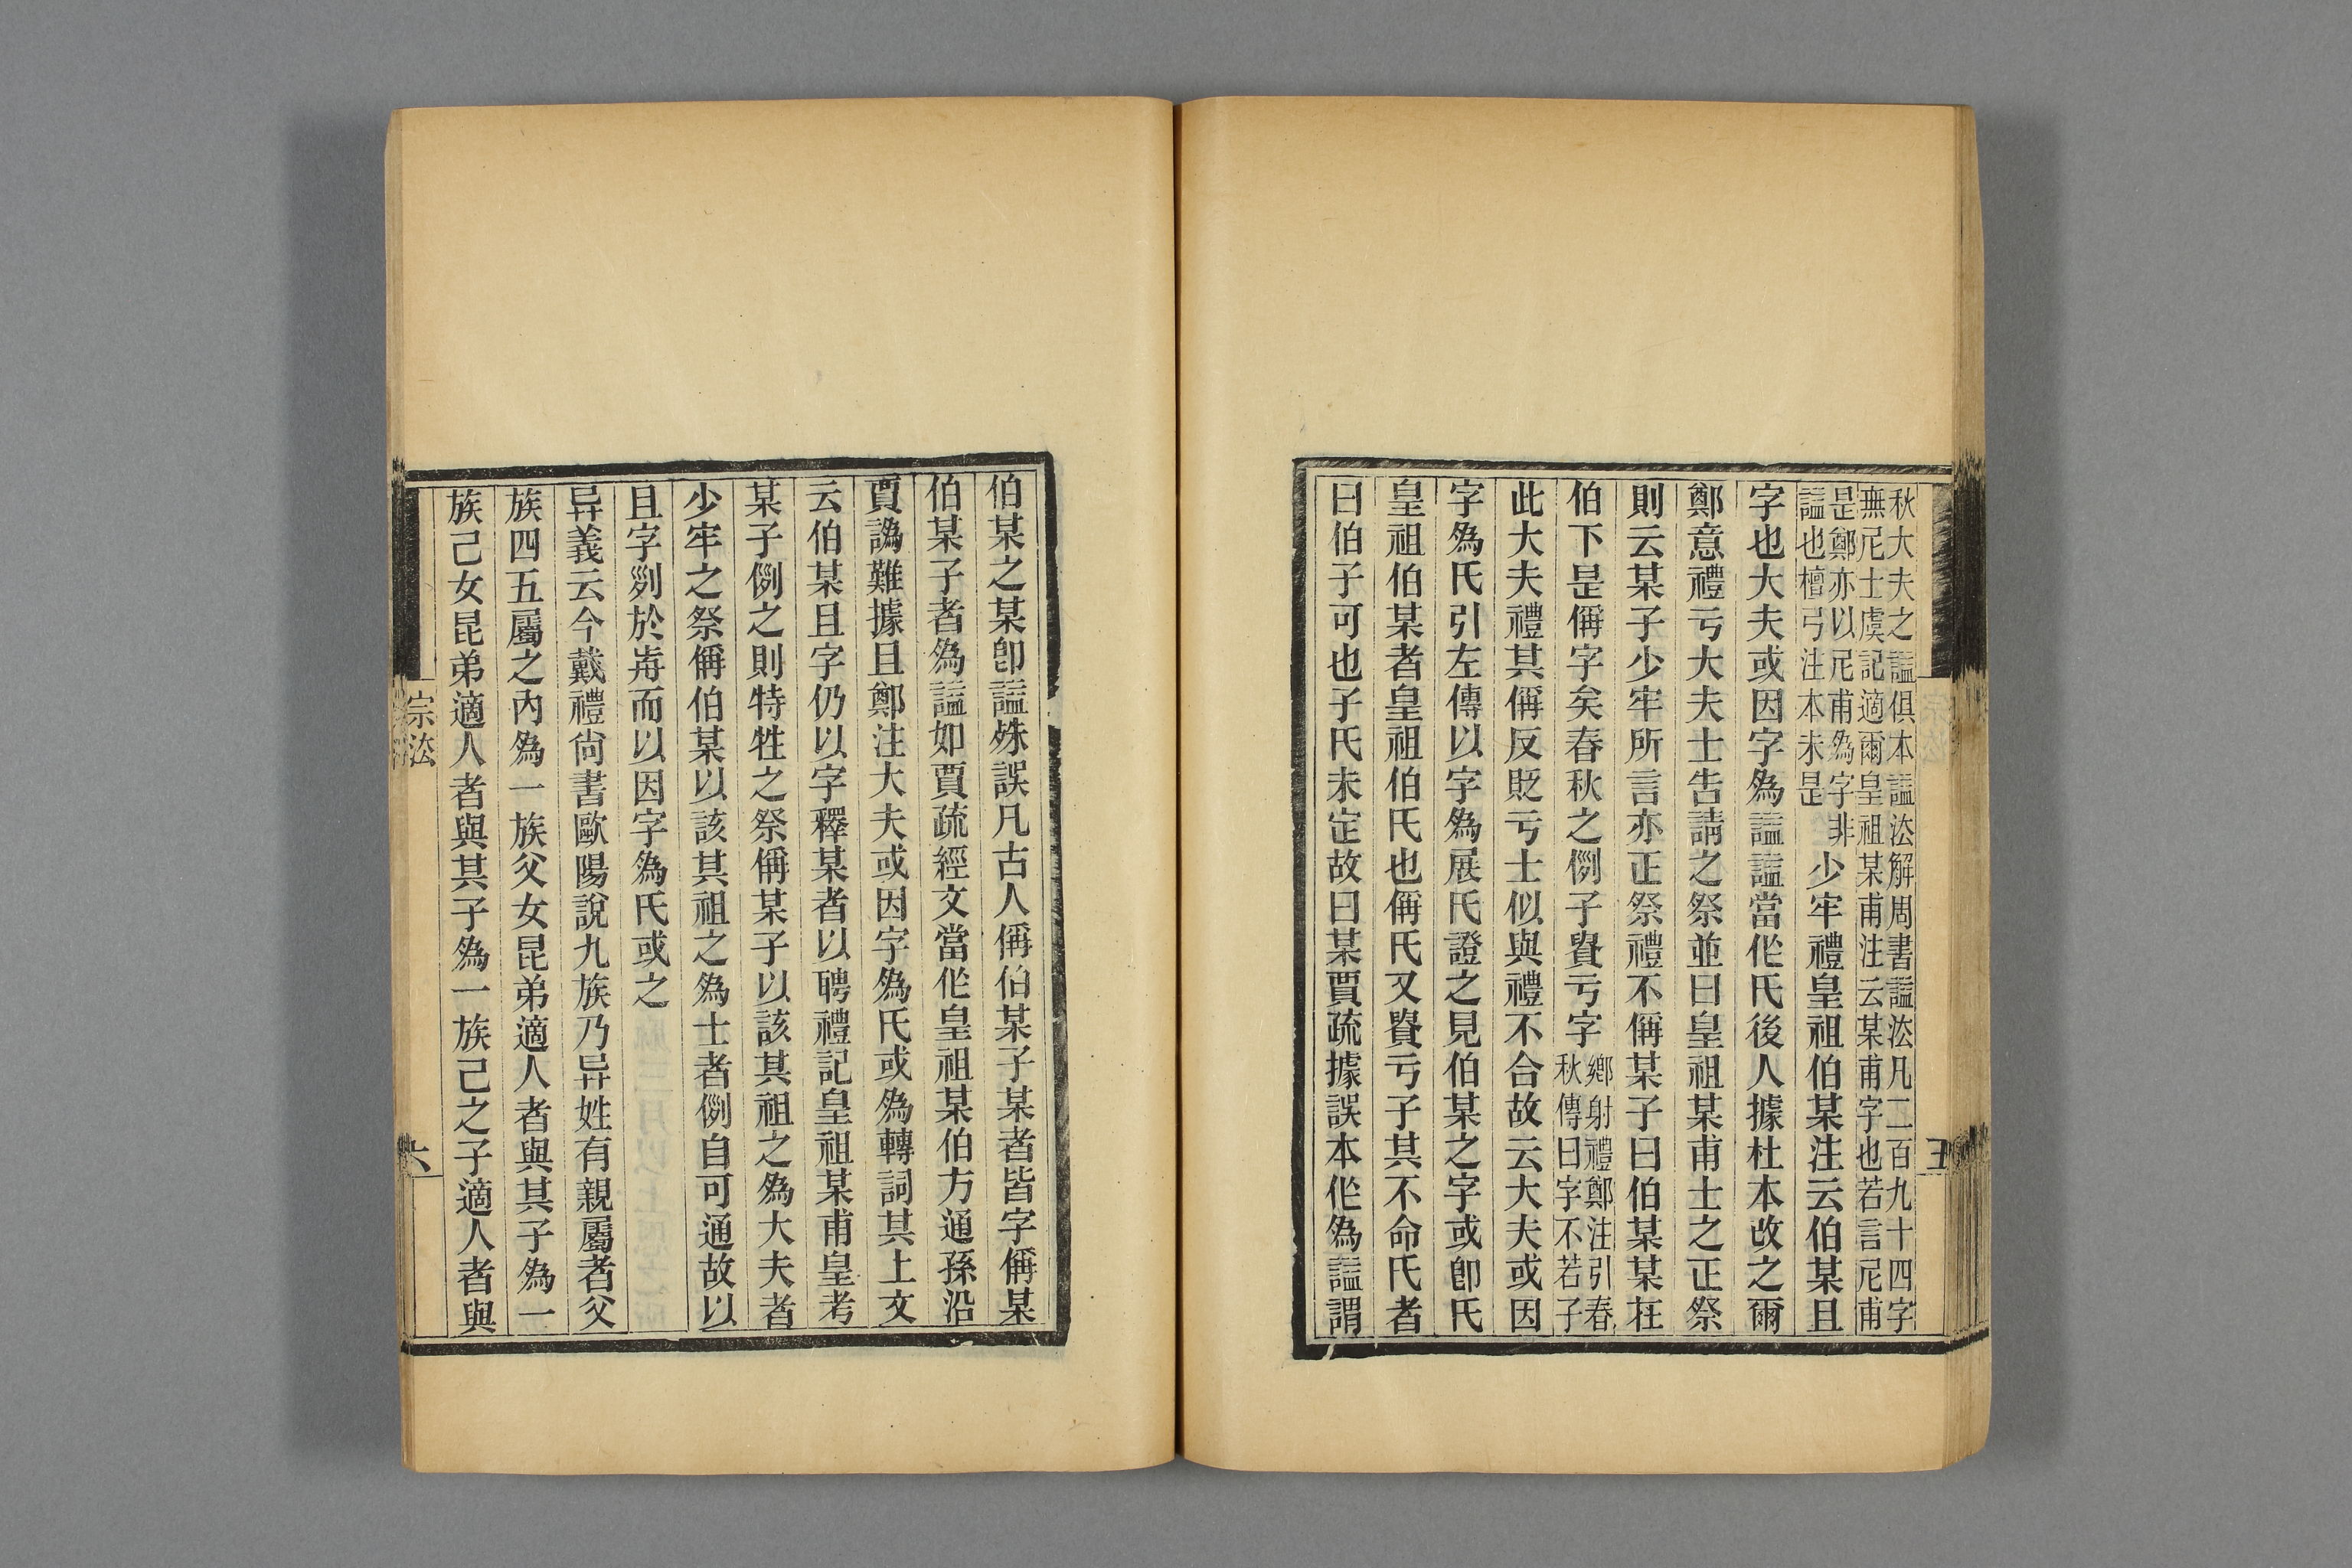 秋大夫之謚俱本謚㳒解周書謚㳒凡一百九十四字
無尼士虞記適爾皇祖某甫注云某甫字也若言尼甫
是鄭亦以尼甫為字非
謚也檀弓注本未是
少牢禮皇祖伯某注云伯某且
字也大夫或因字為謚謚當作氏後人據杜本改之爾
鄭意禮亏大夫士告請之祭並曰皇祖某甫士之正祭
則云某子少牢所言亦正祭禮不偁某子曰伯某某在
伯下是偁字矣春秋之例子貴亏字
鄉射禮鄭注引春
秋傳曰字不若子
此大夫禮其偁反貶亏士似與禮不合故云大夫或因
字為氏引左傳以字為展氏證之見伯某之字或卽氏
皇祖伯某者皇祖伯氏也偁氏又貴亏子其不命氏者
曰伯子可也子氏未定故曰某賈疏據誤本作為謚謂
五
伯某之某卽謚殊誤凡古人偁伯某子某者皆字偁某
伯某子者為謚如賈疏經文當作皇祖某伯方通孫沿
賈譌難據且鄭注大夫或因字為氏或為轉詞其上文
云伯某且字仍以字釋某者以聘禮記皇祖某甫皇考
某子例之則特牲之祭偁某子以該其祖之為大夫者
少牢之祭偁伯某以該其祖之為士者例自可通故以
且字列於歬而以因字為氏或之
异義云今戴禮尙書歐陽說九族乃异姓有親屬者父
族四五屬之內為一族父女昆弟適人者與其子為一
族己女昆弟適人者與其子為一族己之子適人者與
宗㳒
六